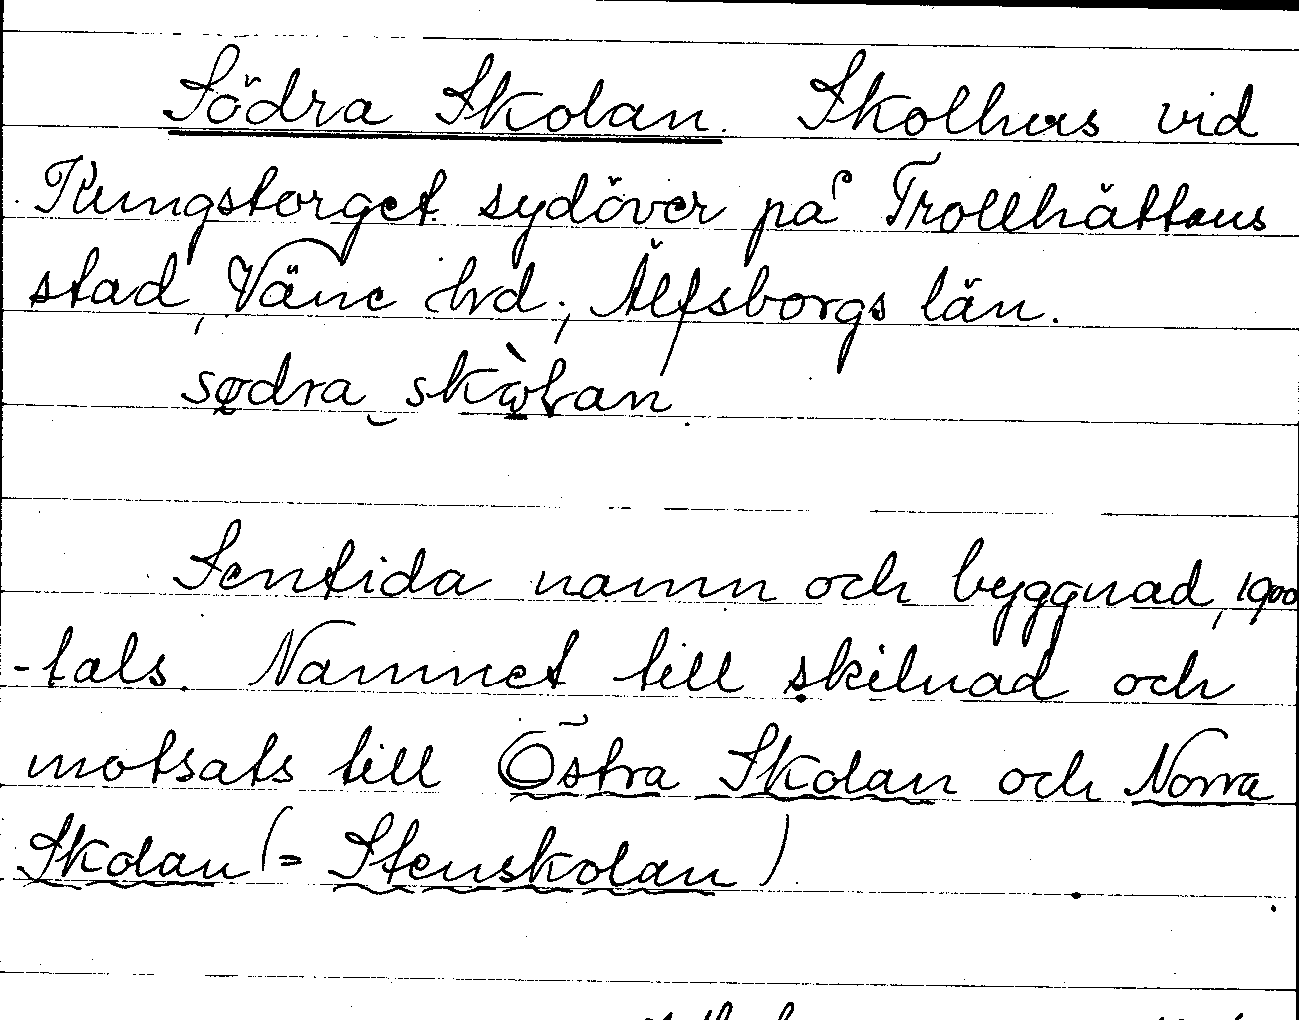 Södra Skolan. Skolhus vid
Kungstorget sydöver på Trollhättans
stad, Väne hrd; Älfsborgs län.
sødra skὼlan
Sentida namn och byggnad, 1900
-tals. Namnet till skilnad och
motsats till Östra Skolan och Norra
Skolan (= Stenskolan)